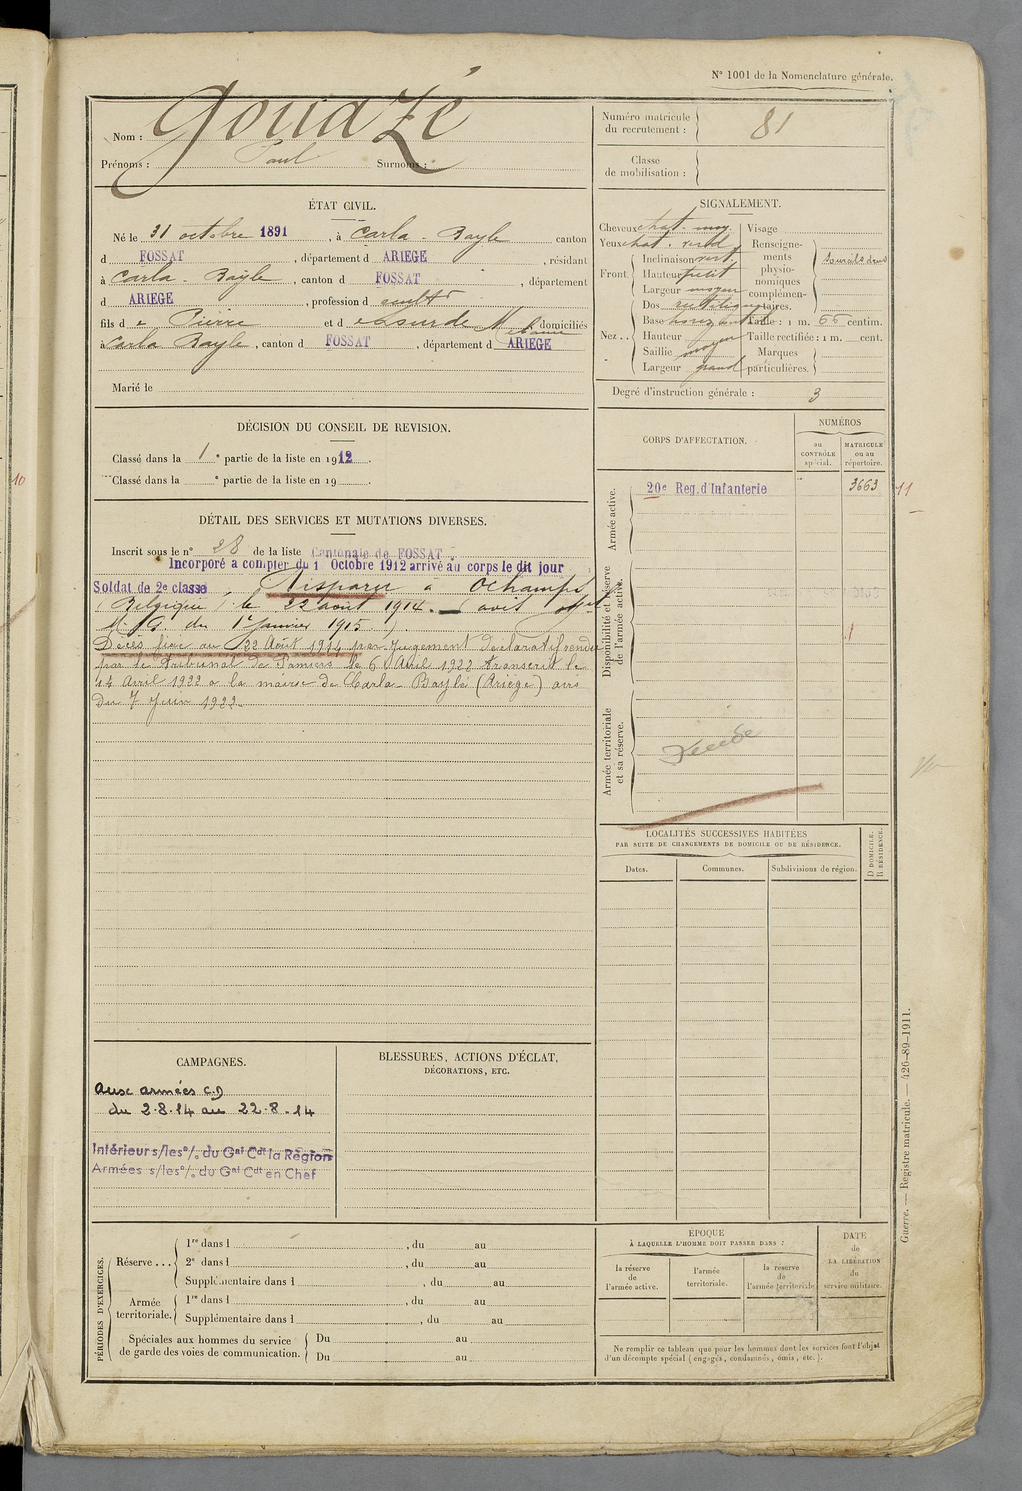 N° 1001 de la Nomenclature générale.
Nom : Gouazé
Prénoms : Paul Surnoms :
Numéro matricule du recrutement : 81
Classe de mobilisation :
ÉTAT CIVIL.
Né le 31 octobre 1891, à Carla-Bayle canton
d FOSSAT, département d ARIEGE, résidant
à Carla-Bayle, canton d FOSSAT, département
d ARIEGE, profession d cultr
fils de Pierre et d domiciliés
à Carla Bayle, canton d FOSSAT, département d ARIEGE
Marié le
SIGNALEMENT.
Cheveux chat. moy.
Yeux chat. verd
Front. Inclinaison vert.
Hauteur petit
Largeur moyen
Nez.. Dos rectiligne
Base horizontale
Hauteur moyen
Saillie moyen
Largeur grand
Visage
Renseignements physionomiques complémentaires.
Taille : 1 m. 66 centim.
Taille rectifiée : 1 m. cent.
Marques particulières.
Degré d'instruction générale : 3
DÉCISION DU CONSEIL DE REVISION.
Classé dans la 1e partie de la liste en 1912.
Classé dans la e partie de la liste en 19
CORPS D'AFFECTATION.
NUMÉROS
au CONTRÔLE spécial.
MATRICULE ou au répertoire.
Armée active.
20e Reg. d'Infanterie 3663 11
Disponibilité et réserve de l'armée active.
Armée territoriale et sa réserve.
DÉTAIL DES SERVICES ET MUTATIONS DIVERSES.
Inscrit sous le n° 28 de la liste Cantonale de FOSSAT
Incorporé a compter du 1 Octobre 1912 arrivé au corps le dit jour
Soldat de 2e classe, Disparu à Ochamps
(Belgique) le 22 août 1914. (avis
M.G. du 1er Janvier 1915.)
Décès fixé au 22 Août 1914 par Jugement déclaratif rendu
par le Tribunal de Pamiers le 6 Avril 1922 transcrit le
14 Avril 1922 a la mairie de Carla-Bayle (Ariège) avis
du 7 Juin 1922
LOCALITÉS SUCCESSIVES HABITÉES
PAR SUITE DE CHANGEMENTS DE DOMICILE OU DE RÉSIDENCE.
Dates. Communes. Subdivisions de région. D DOMICILE. R RÉSIDENCE.
CAMPAGNES.
Aux armées C.D
du 2-8-14 au 22-8-14
Intérieur s/les o/. du Gal Cdt la Région
Armées s/les o/. du Gal Cdt en Chef
BLESSURES, ACTIONS D'ÉCLAT,
DÉCORATIONS, ETC.
PÉRIODES D'EXERCICES.
Réserve... 1re dans l, du au
2e dans l, du au
Supplémentaire dans l, du au
Armée territoriale. 1re dans l, du au
Supplémentaire dans l, du au
Spéciales aux hommes du service de garde des voies de communication. Du au
Du au
ÉPOQUE
À LAQUELLE L'HOMME DOIT PASSER DANS :
la réserve de l'armée active.
l'armée territoriale.
la réserve de l'armée territoriale
DATE de LA LIBÉRATION du service militaire.
Ne remplir ce tableau que pour les hommes dont les services font l'objet
d'un décompte spécial (engagés, condamnés, omis, etc.).
Guerre. — Registre matricule. — 426-89-1911.